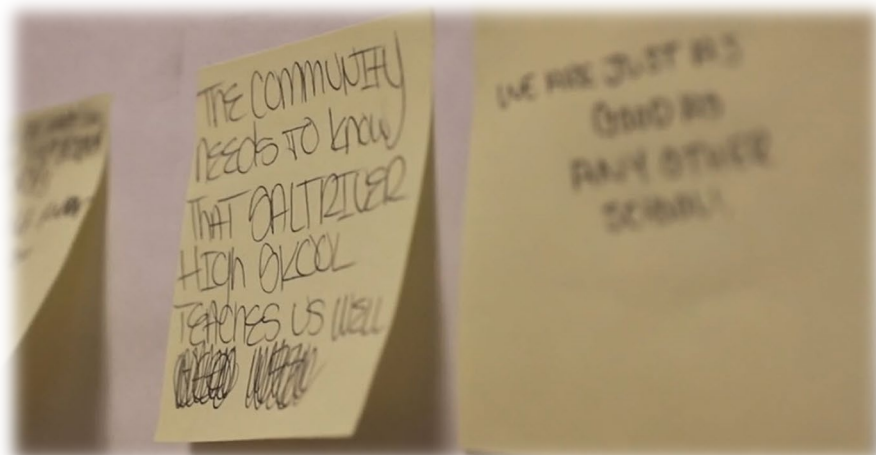 THE COMMUNITY
NEEDS TO KNOW
THAT SALTRIVER
HIGH SKOOL
TEACHES US WELL
WE ARE JUST AS
GOOD AS
ANY OTHER
SCHOOL!